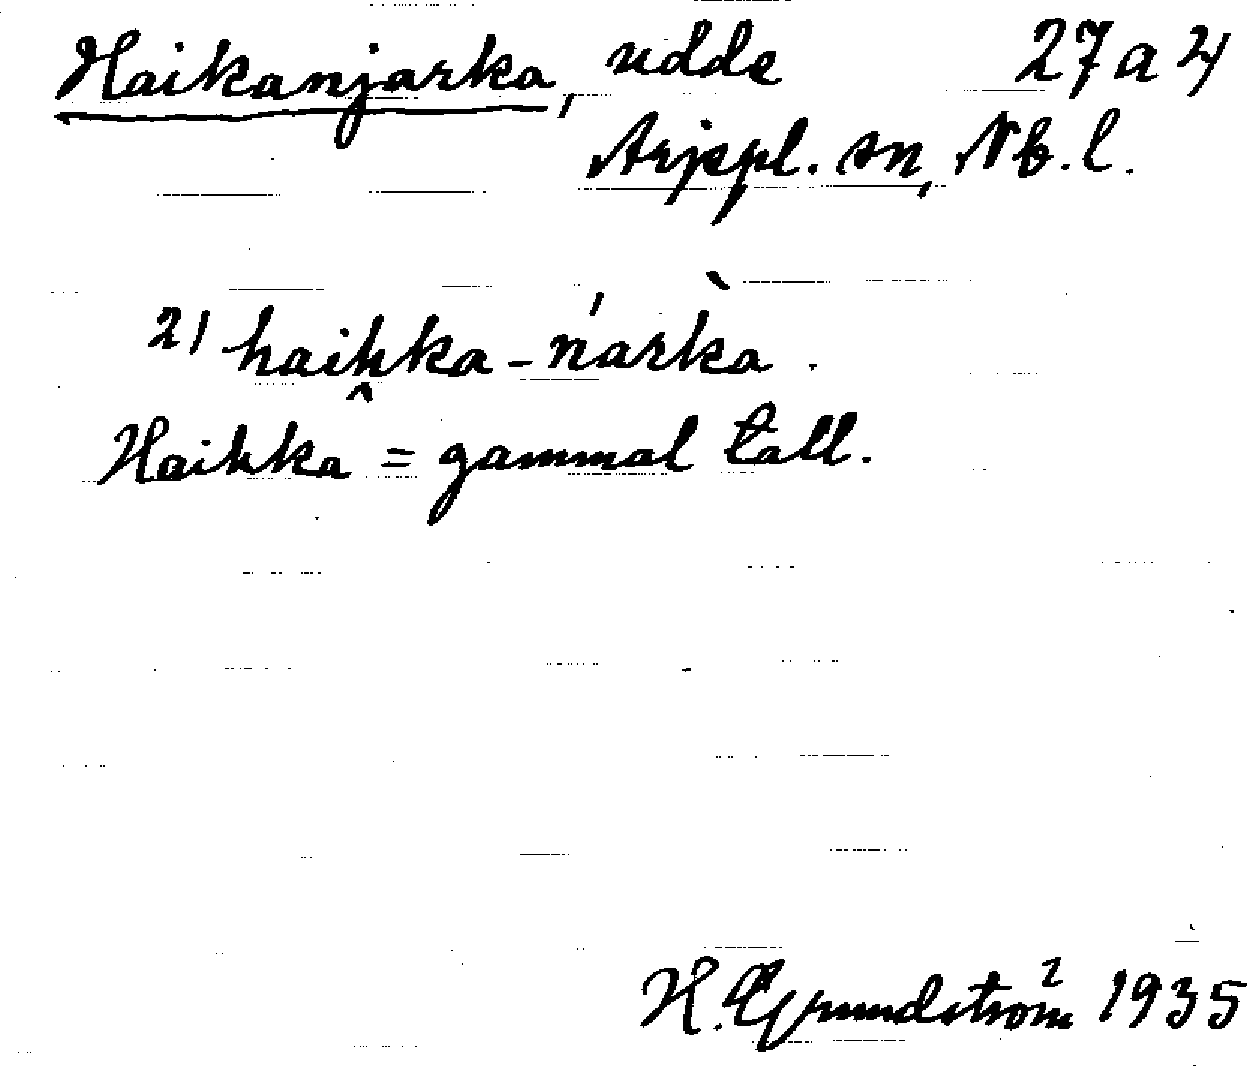 Haikanjarka, udde 27 a 4
Arjepl. sn, Nb. l.
2) haihka-ńàrka.
Haihka = gammal tall.
H. Grundström 1935